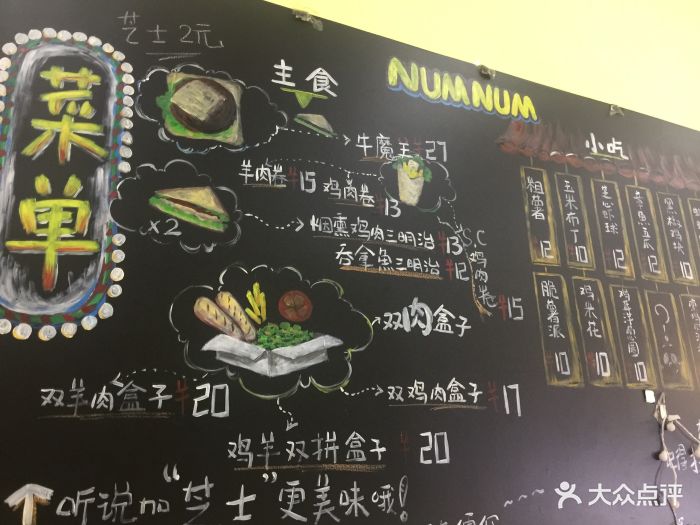 菜单
芝士2元
主食
NUMNUM
牛魔王¥27
羊肉卷¥15 鸡肉卷¥13
×2
烟熏鸡肉三明治¥13
吞拿鱼三明治¥12
S.C鸡肉卷¥15
双肉盒子
双羊肉盒子¥20
双鸡肉盒子¥17
鸡羊双拼盒子¥20
听说加“芝士”更美味哦!
小吃
粗薯12
玉米布丁10
12
章鱼12
10
脆薯派10
鸡米花10
鸡草洋葱圈10
?
大众点评